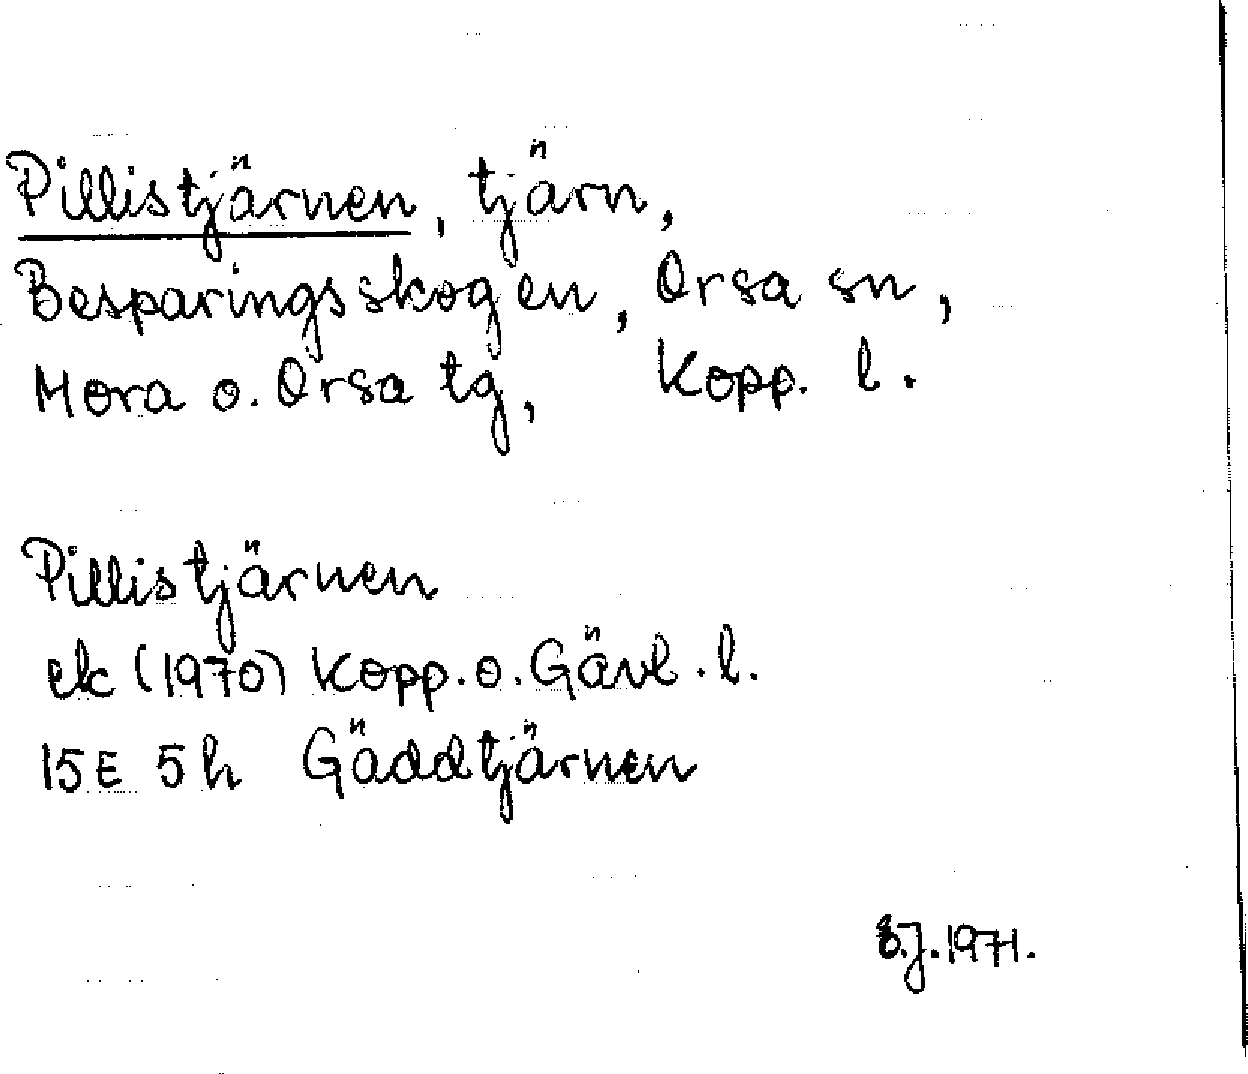 Pillistjärnen, tjärn,
Besparingsskogen, Orsa sn,
Mora o. Orsa tg, Kopp. l.
Pillistjärnen
ek (1970) Kopp. o. Gävl. l.
15E 5h Gäddtjärnen
E.J. 1971.